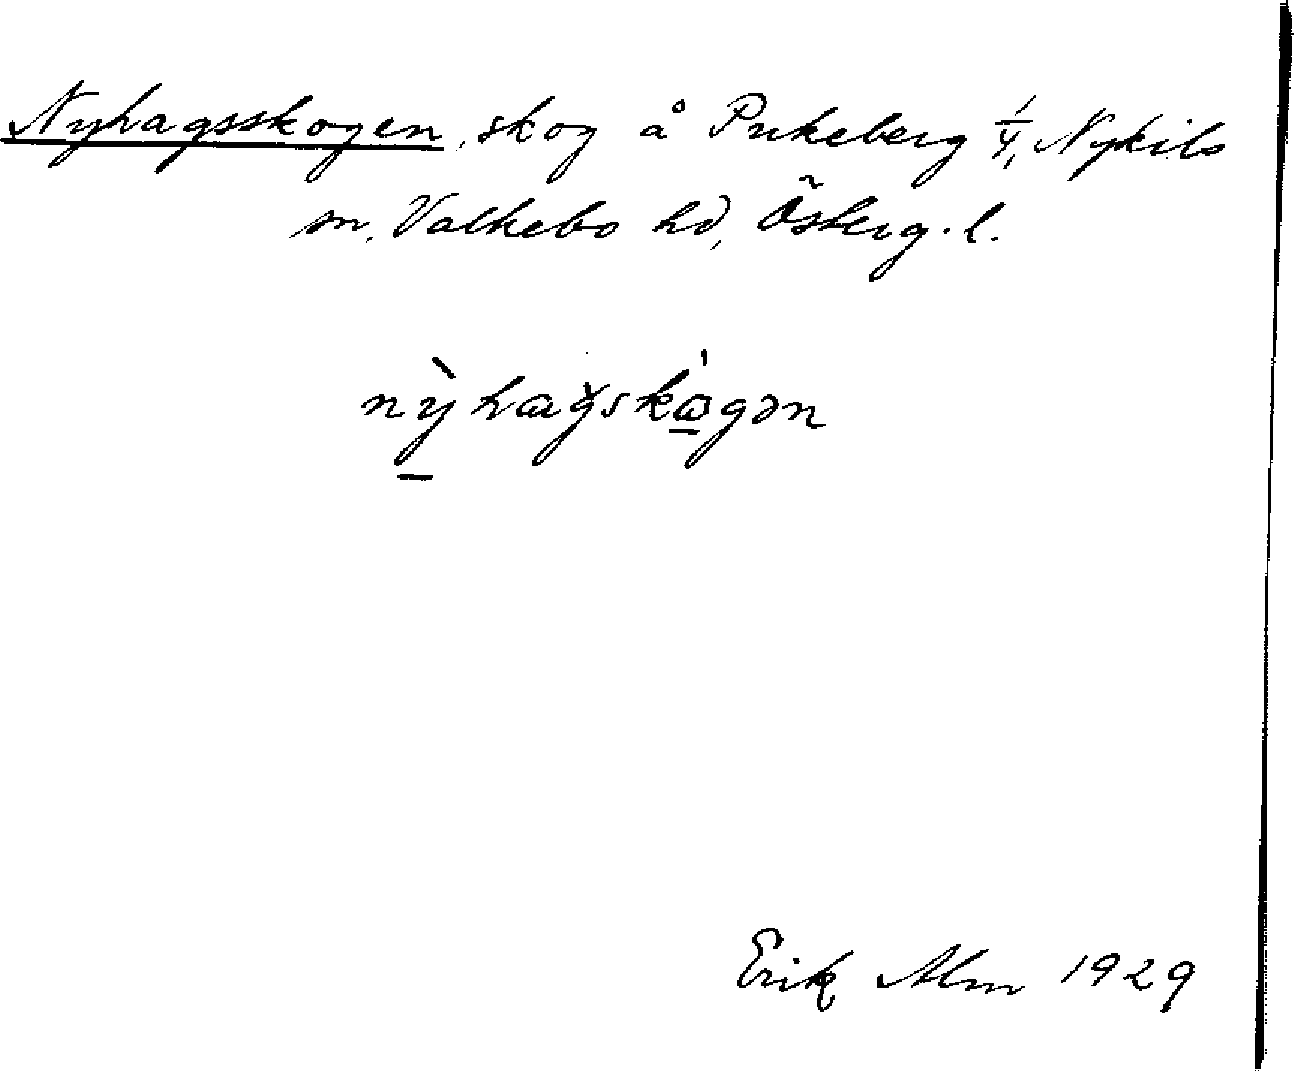 Nyhagsskogen, skog å Pukeberg 1/4, Nykils
sn, Valkebo hd, Österg. l.
nỳhagskógən
Erik Alm 1929